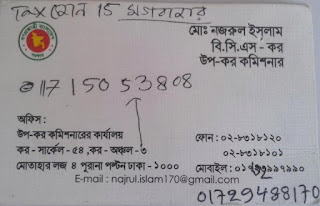 Tax জোন 15 মগবাজার
মোঃ নজরুল ইসলাম
বি.সি.এস - কর
উপ-কর কমিশনার
01715053808
অফিস :
উপ-কর কমিশনারের কার্যালয়
কর - সার্কেল - ৫৪ ,কর - অঞ্চল - ৩
মোতাহার লজ ৪ পুরানা পল্টন ঢাকা - ১০০০
ফোন : ০২-৮৩১৮১২০
০২-৮৩১৮১০১
মোবাইল :
E-mail : najrul.islam170@gmail.com
01729488170